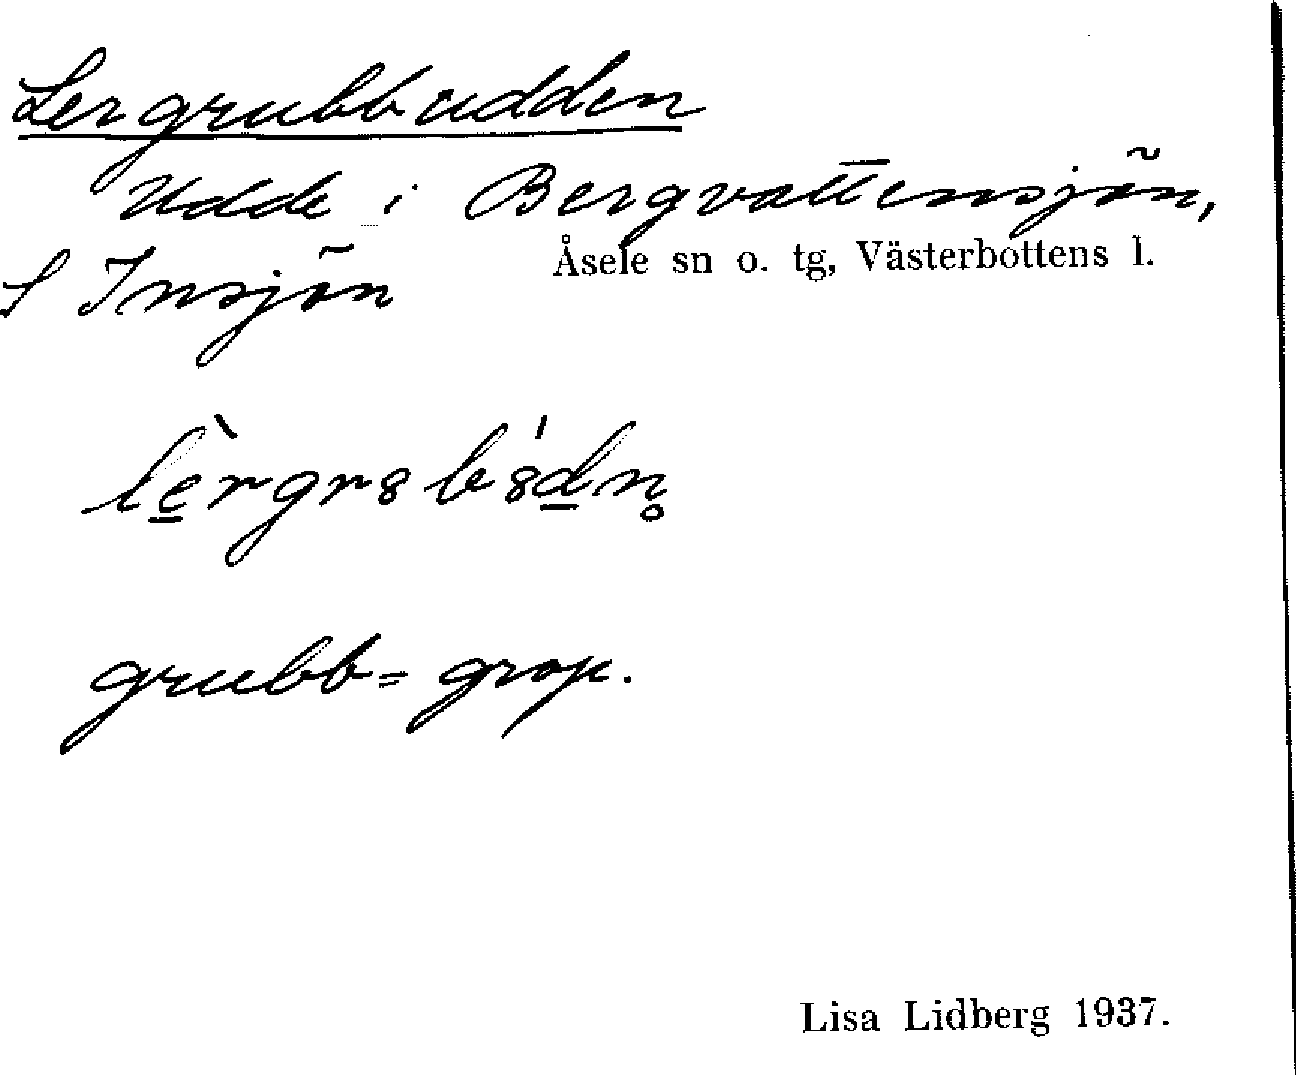 Lergrubbudden
Udde i Bergvattensjön,
Åsele sn o. tg, Västerbottens l.
S Insjön
lè̱rgr8b8́ḏn̥
grubb = grop.
Lisa Lidberg 1937.